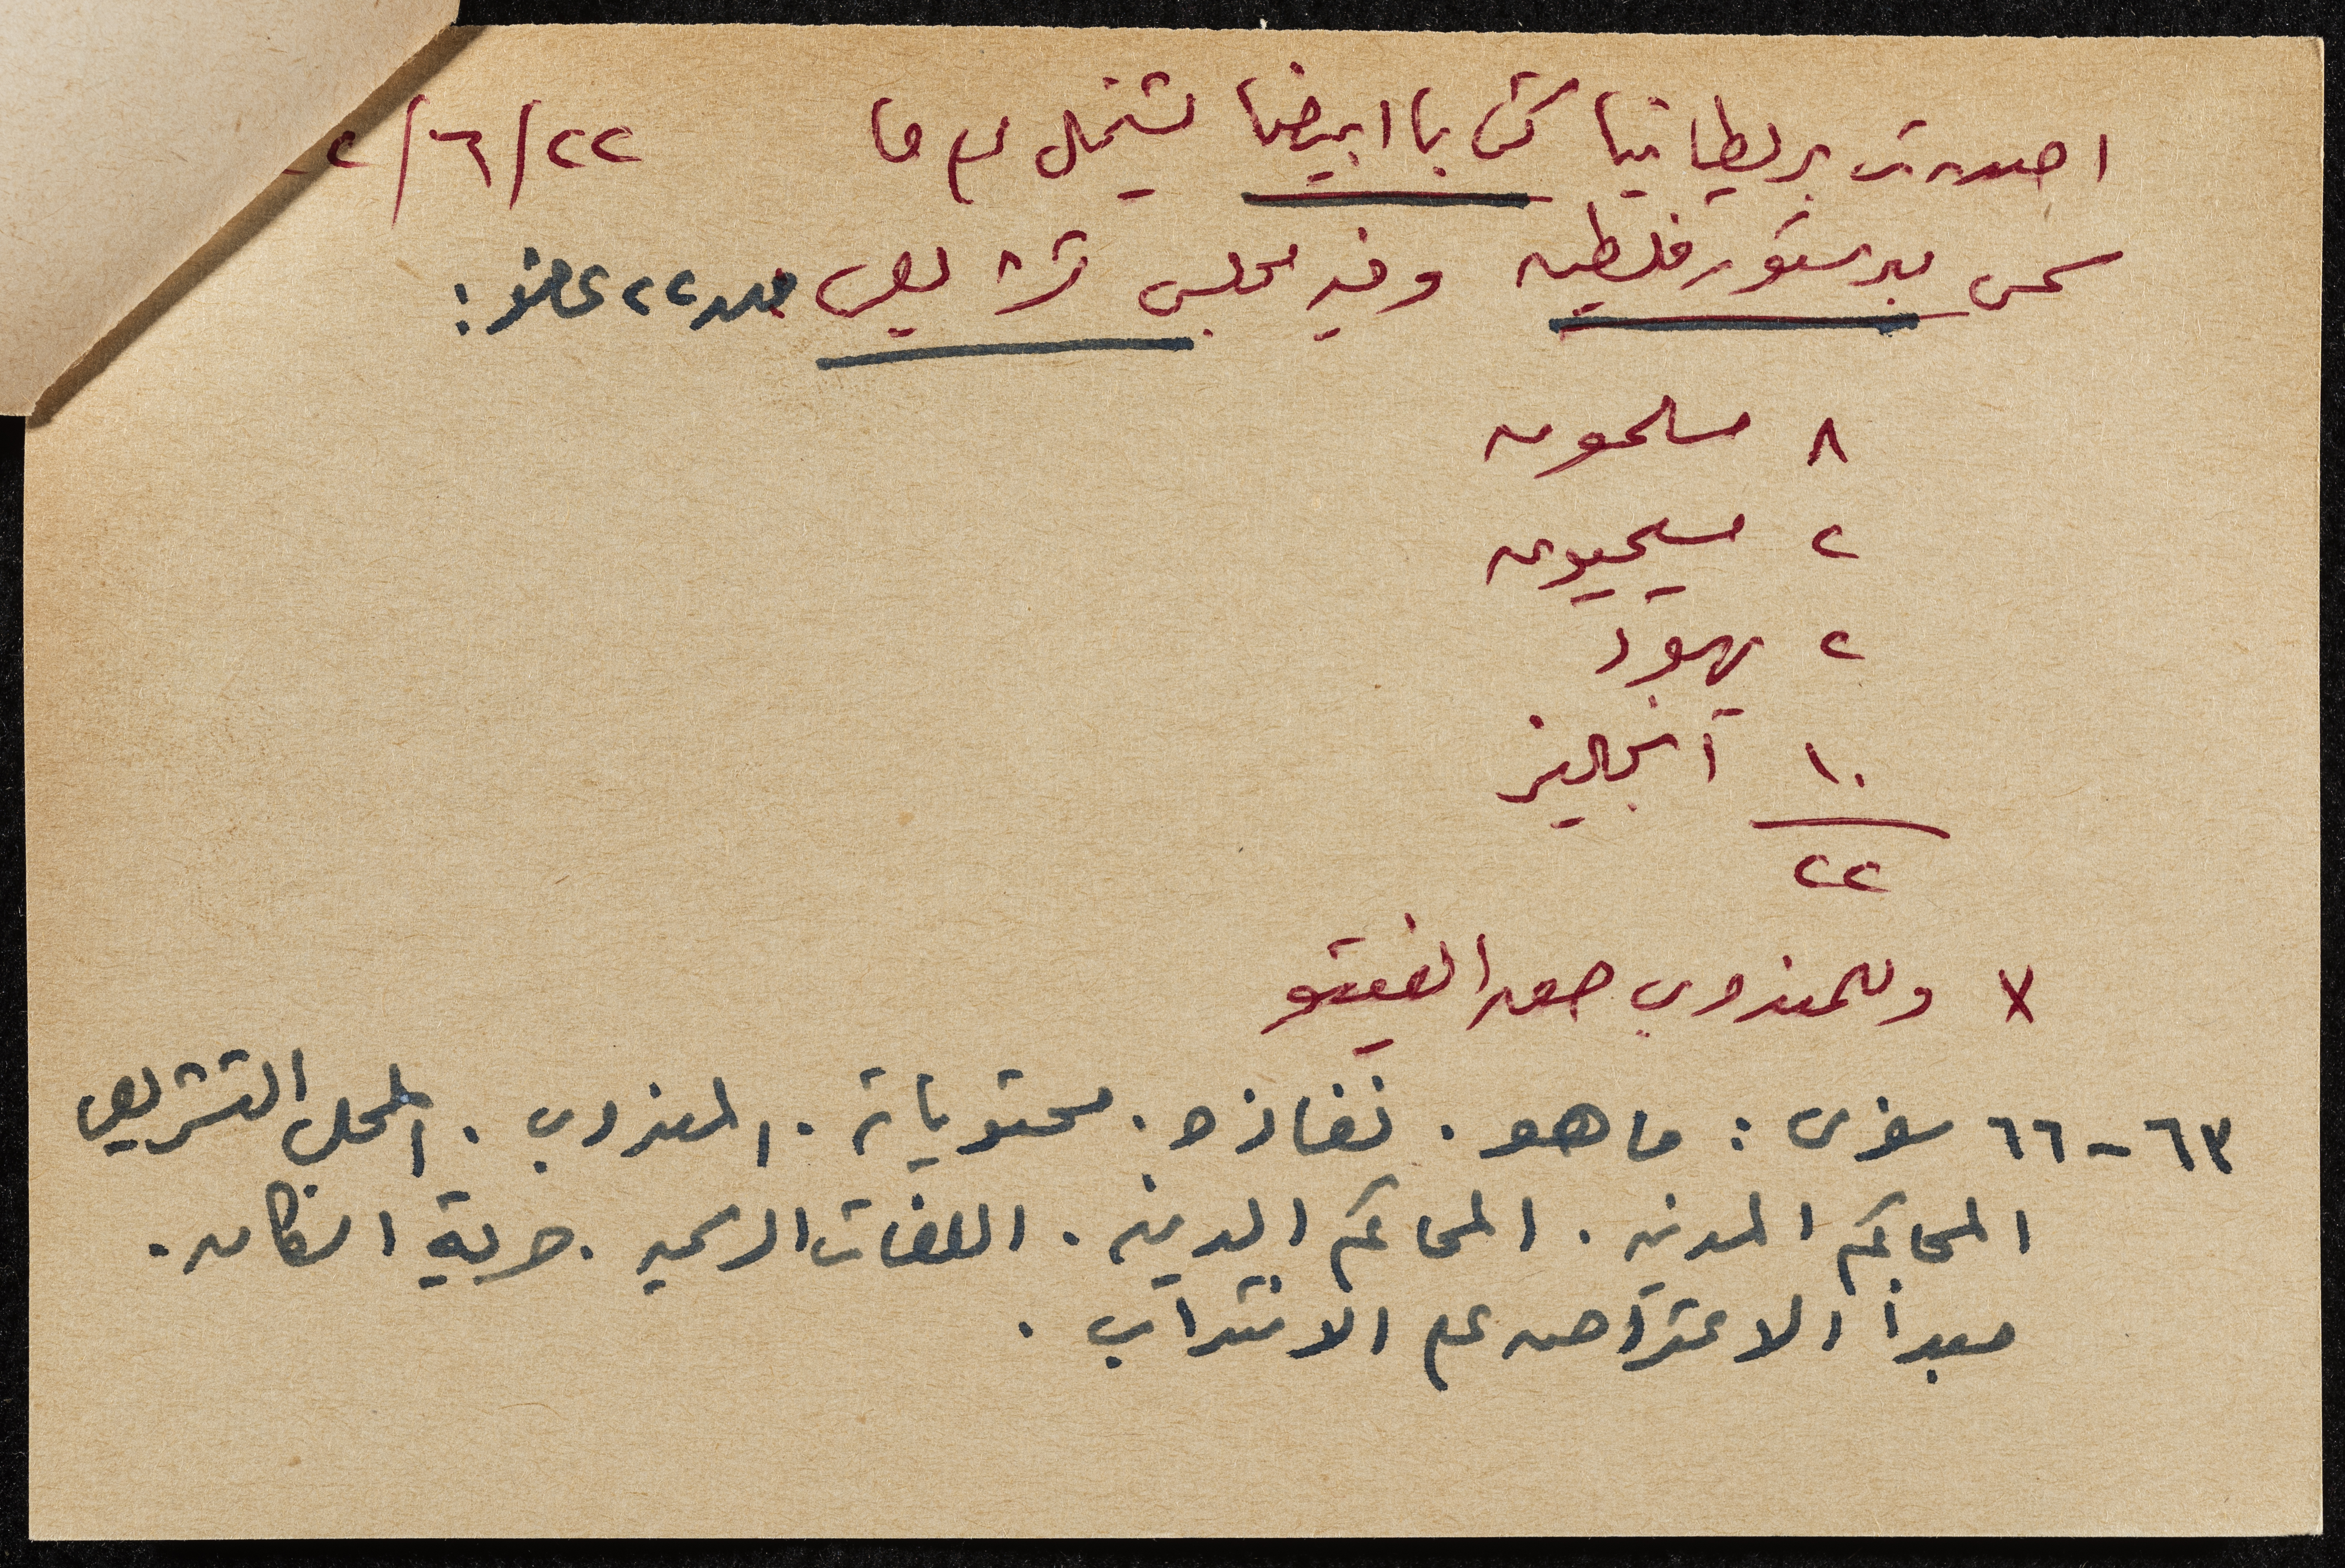 اصدرت بريطانيا كتابا ابيضا يشتمل على ما ٢٢/٦/٢
سمى بدستور فلسطين وفيه مجلس تشريعي من ٢٢ عضو :
٨ مسلمون
٢ مسيحيون
٢ يهود
١٠ انجليز
٢٢
x وللمندوب حق الفيتو
٦٣-٦٦ سفرى : ما هو . نفاذه . محتوياته . المندوب . المجلس التشريعي
المحاكم المدنيه . المحاكم الدينيه . اللغات الرسميه . حرية السكان .
مبدأ الاعتراض على الانتداب .